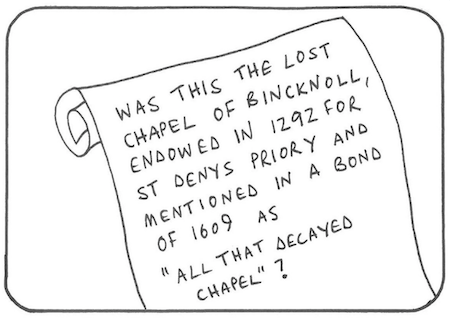 WAS THIS THE LOST
CHAPEL OF BINCKNOLL,
ENDOWED IN 1292 FOR
ST DENYS PRIORY AND
MENTIONED IN A BOND
OF 1609 AS
"ALL THAT DECAYED
CHAPEL"?